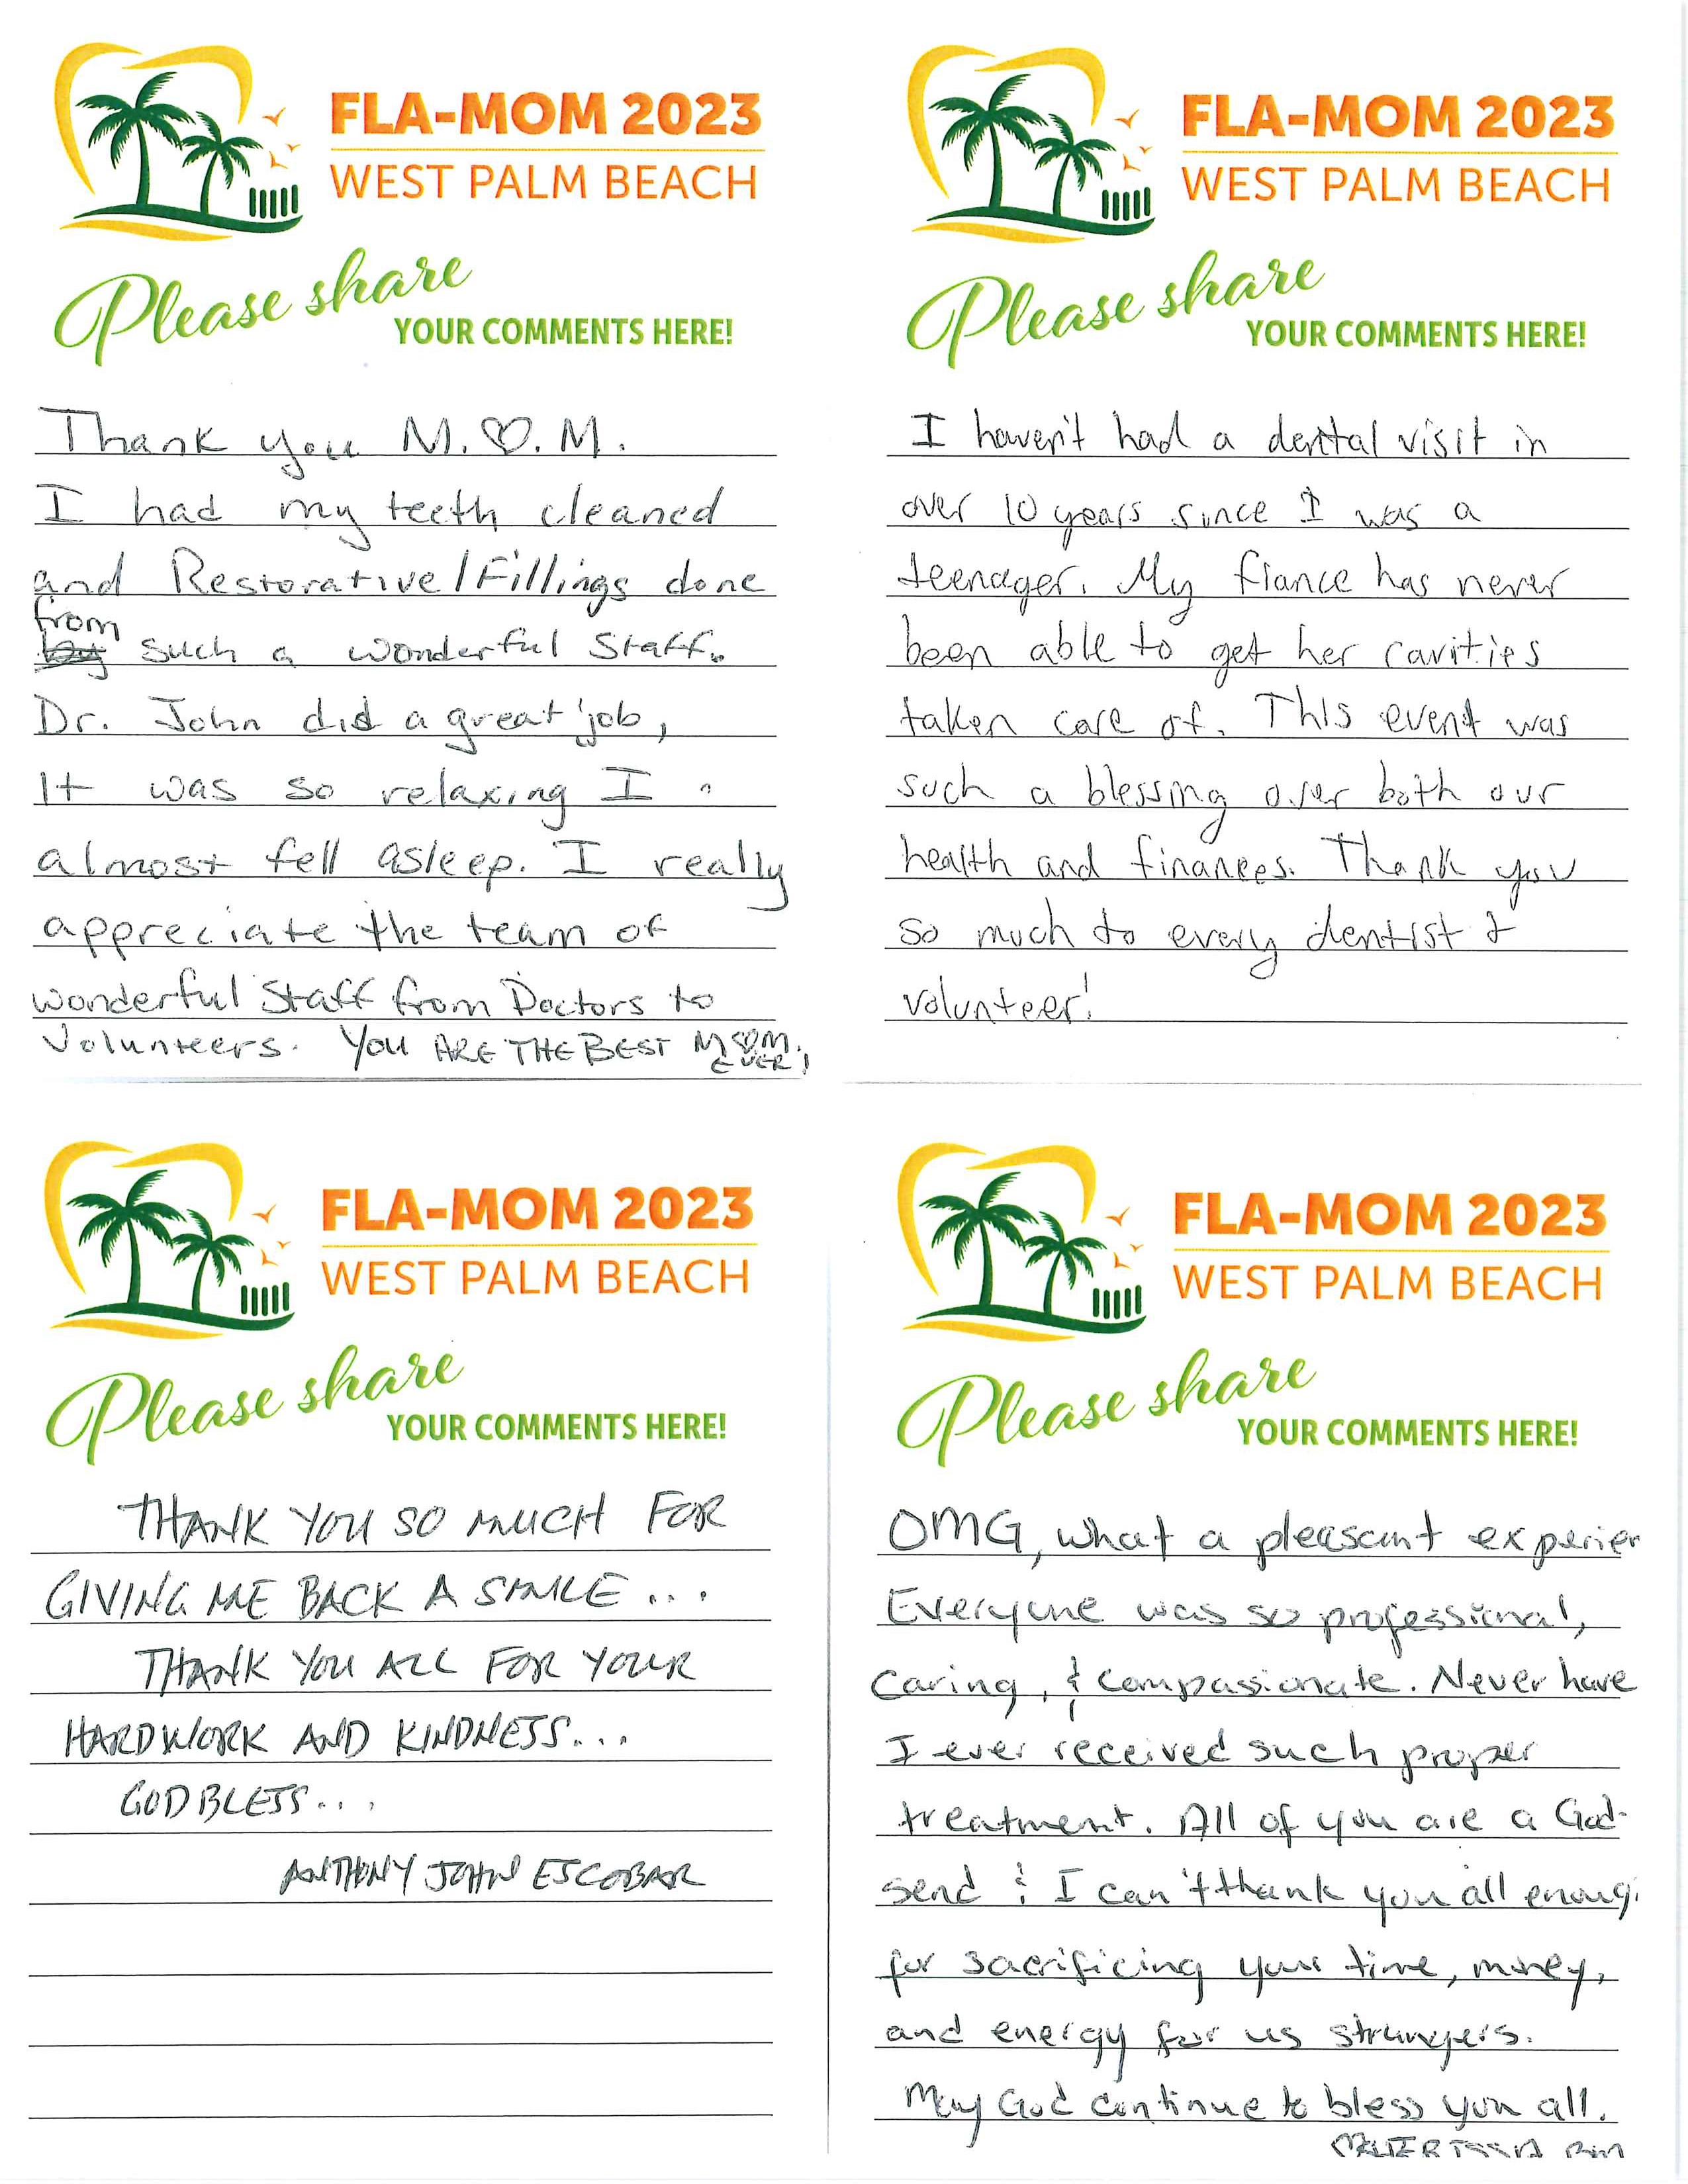 FLA-MOM 2023
WEST PALM BEACH
Please share
YOUR COMMENTS HERE!
Thank you M.♡.M.
I had my teeth cleaned
and Restorative/Fillings done
from
such a wonderful Staff.
Dr. John did a great job,
It was so relaxing I
almost fell asleep. I really
appreciate the team of
wonderful Staff from Doctors to
Volunteers. YOU ARE THE BEST M♡M.
EVER!
FLA-MOM 2023
WEST PALM BEACH
Please share
YOUR COMMENTS HERE!
I haven't had a dental visit in
over 10 years since I was a
teenager. My fiance has never
been able to get her cavities
taken care of. This event was
such a blessing over both our
health and finances. Thank you
so much to every dentist &
volunteer!
FLA-MOM 2023
WEST PALM BEACH
Please share
YOUR COMMENTS HERE!
THANK YOU SO MUCH FOR
GIVING ME BACK A SMILE...
THANK YOU ALL FOR YOUR
HARDWORK AND KINDNESS...
GOD BLESS...
ANTHONY JOHN ESCOBAR
FLA-MOM 2023
WEST PALM BEACH
Please share
YOUR COMMENTS HERE!
OMG, what a pleasant experien
Everyone was so professional,
caring, & compassionate. Never have
I ever received such proper
treatment. All of you are a God-
send & I can't thank you all enoug
for sacrificing your time, money,
and energy for us strangers.
May God continue to bless you all.